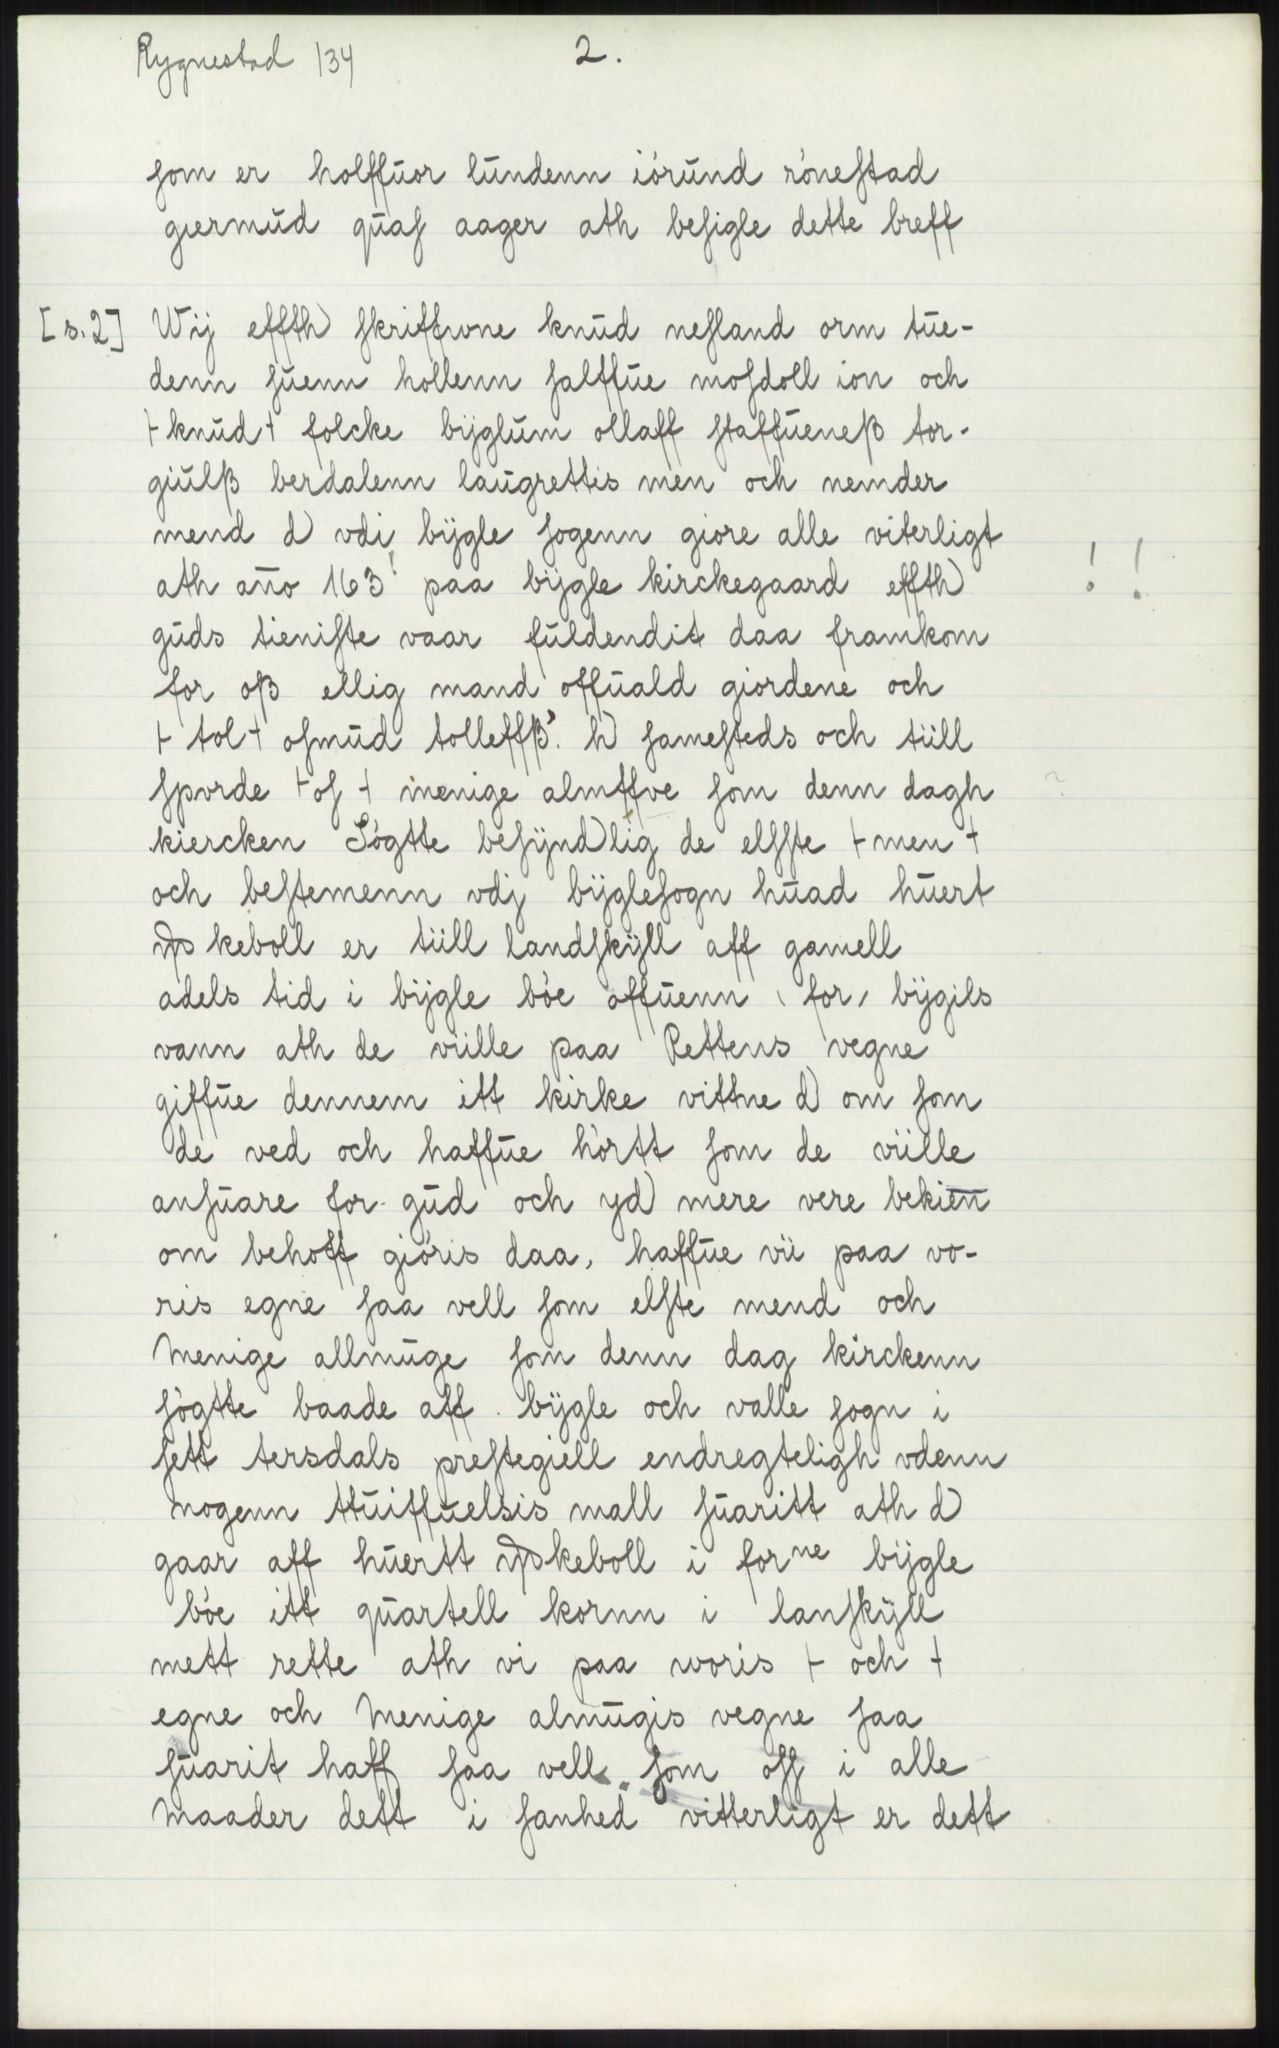 Rygnestad 134 2.
som er holffuor lundenn iórund rónestad
giermud quas aager ath besigle dette breff
[s. 2] Wij effth) skriffwne knud nesland orm tue-
denn suenn hollenn salffue mosdoll ion och
+ knud + folcke bijglum ollaff staffueneß tor-
giulß berdalenn laugrettis men och nemder
mend d) vdi bijgle sogenn giore alle viterligt
ath año 163! paa bijgle kirckegaard effth) ! !
guds tieniste vaar fuldendit daa framkom
for oß ellig mand offuald giordene och
+ tol + osmud tolleffß. h) samesteds och tiill
spvrde + os + menige almffve som denn dagh ?
kiercken Sógtte besÿnd)lig de elsste + men +
och bestemenn vdj bijglesogn huad huert
keboll er tiill landskÿll aff gamell
adels tid i bijgle bóe offuenn , for, bijgils
vann ath de viille paa Rettens vegne
giffue dennem itt kirke vittne d) om som
de ved och haffue hórtt som de viille
ansuare for gud och yd) mere vere bekien
om behoff gióris daa, haffue vii paa vo-
ris egne saa vell som elste mend och
Menige allmuge som denn dag kirckenn
sógtte baade aff bijgle och valle sogn i
sett tersdals prestegiell endregteligh vdenn
nogenn ttuiffuelsis mall suaritt ath d)
gaar aff huertt keboll i forne bijgle
bóe itt quartell kornn i lanskÿll
mett rette ath vi paa woris + och +
egne och Menige almugis vegne saa
suarit haff saa vell som oss i alle
Maader dett i sanhed vitterligt er dett